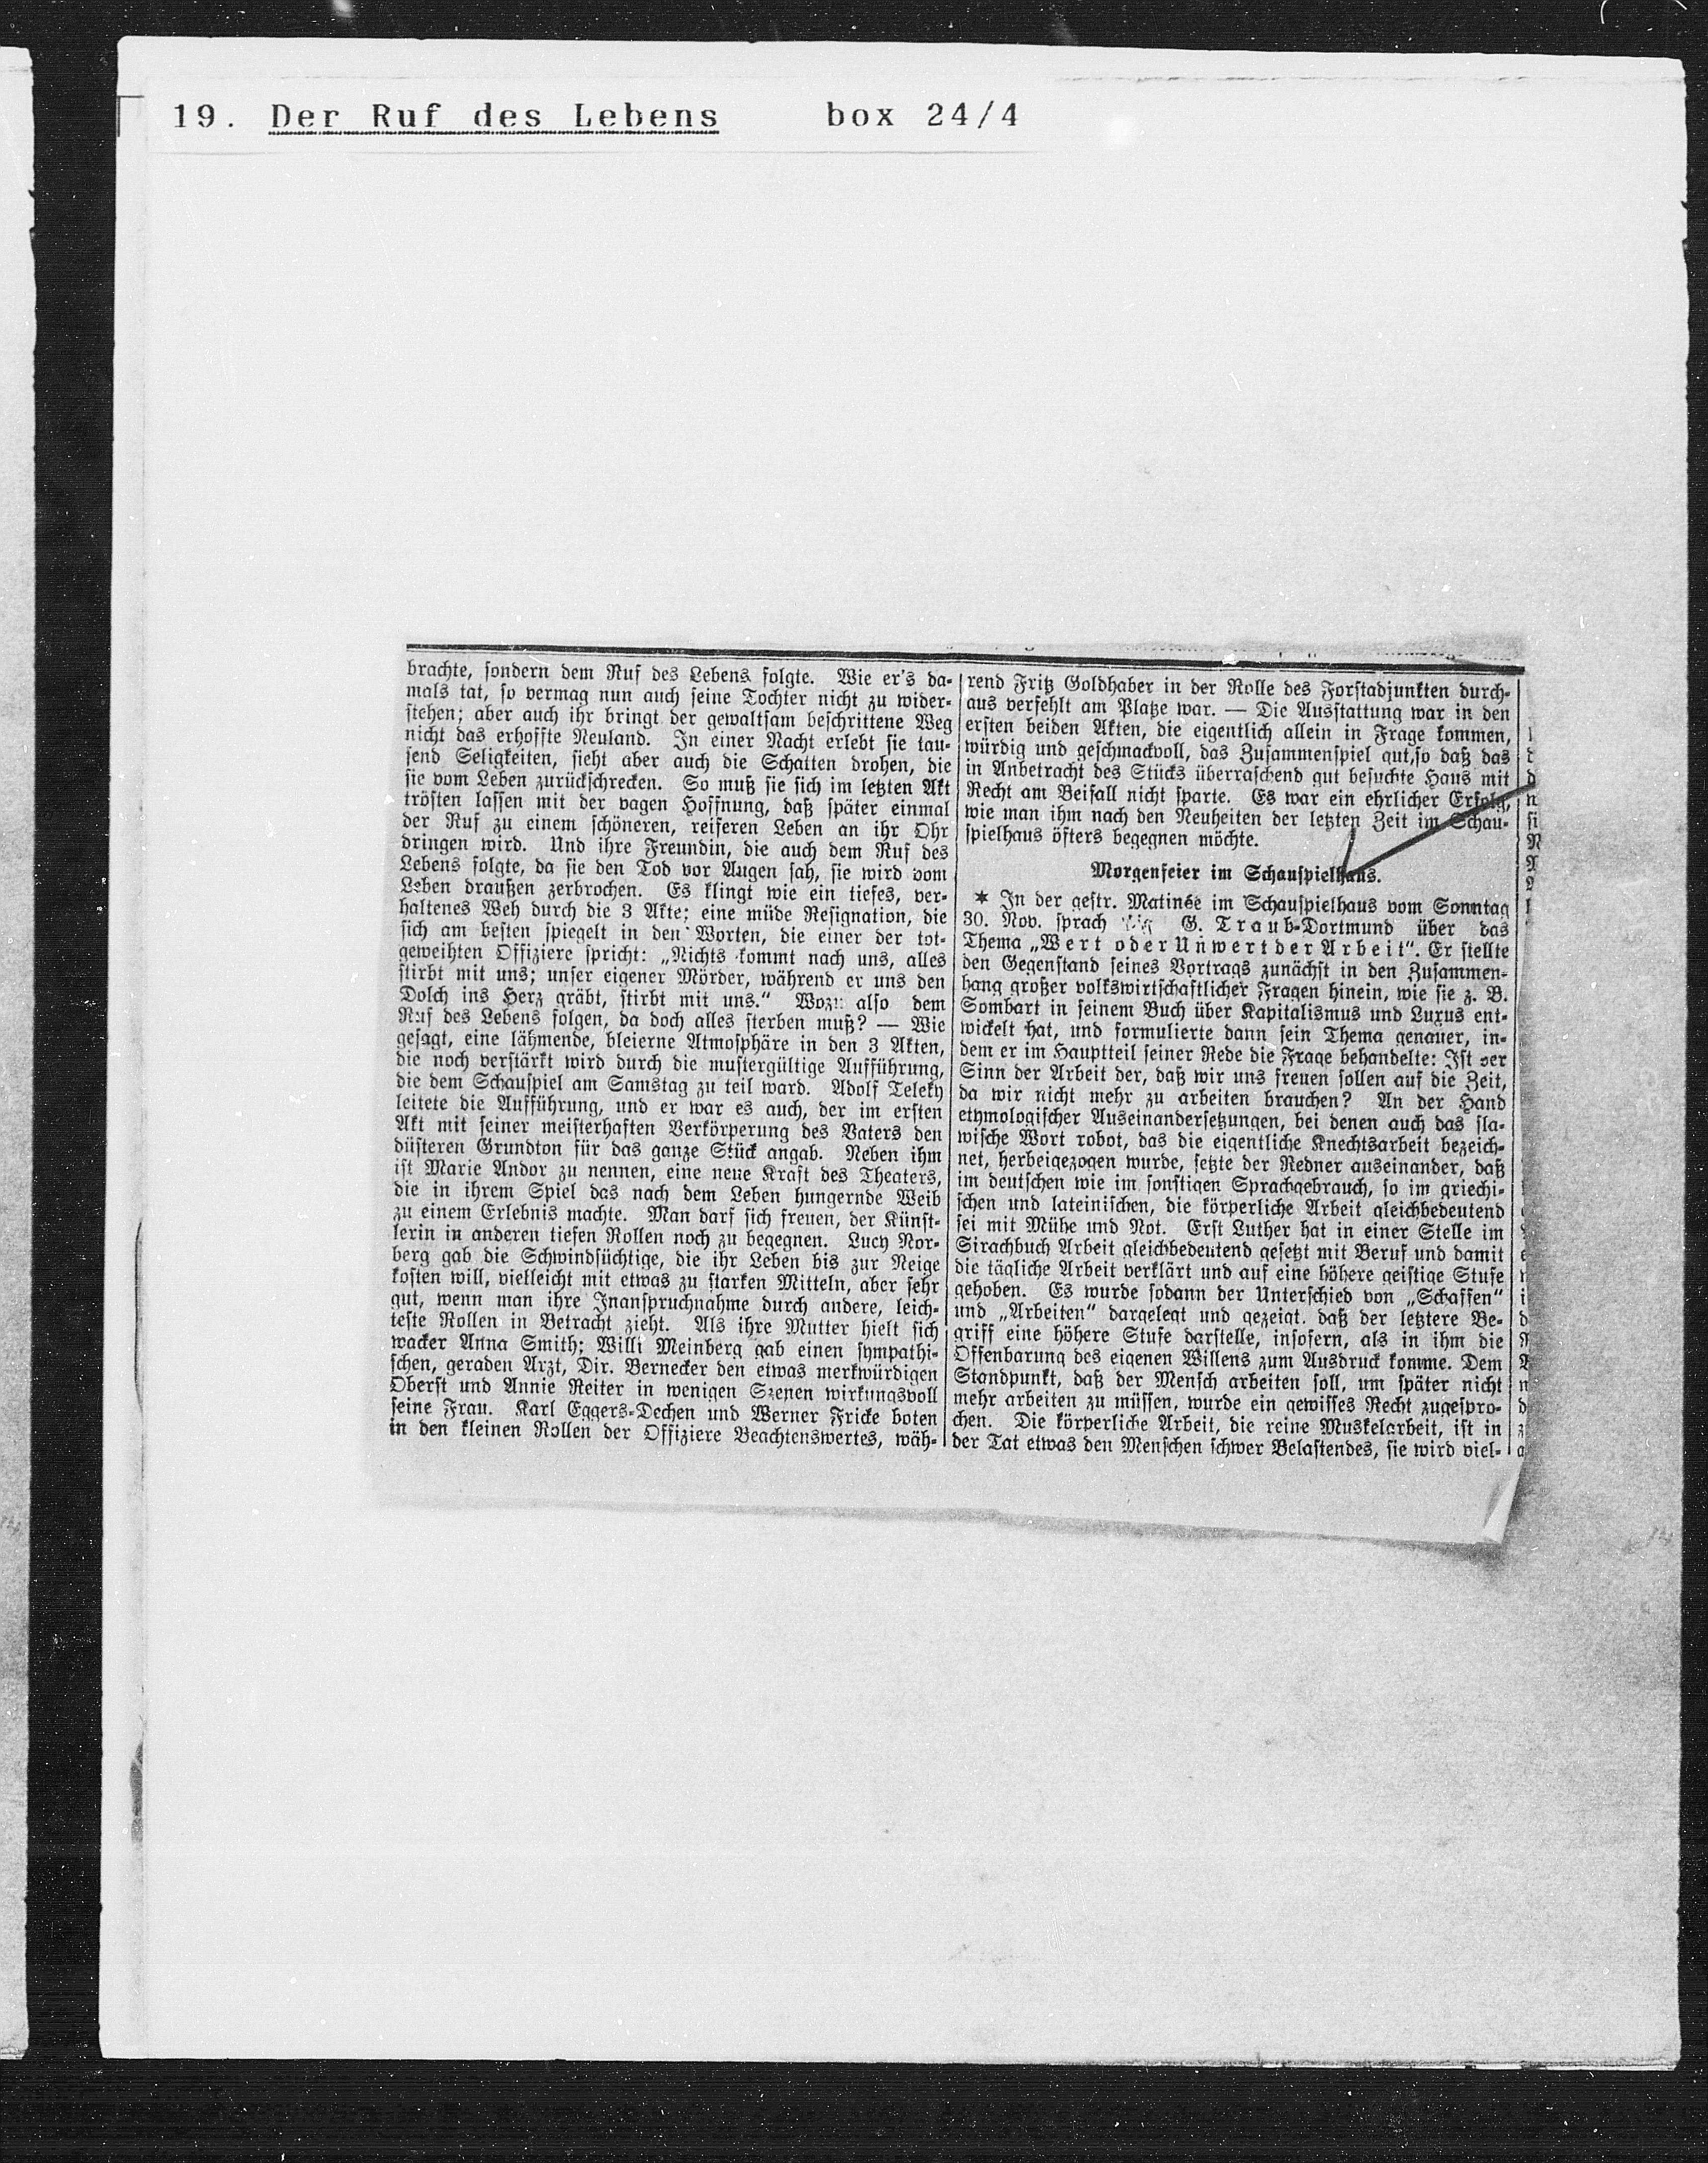 19. Der Ruf des Lebens box 24/4
brachte, sondern dem Ruf des Lebens folgte. Wie er's da-
mals tat, so vermag nun auch seine Tochter nicht zu wider-
stehen; aber auch ihr bringt der gewaltsam beschrittene Weg
nicht das erhoffte Neuland. In einer Nacht erlebt sie tau-
send Seligkeiten, sieht aber auch die Schatten drohen, die
sie vom Leben zurückschrecken. So muß sie sich im letzten Akt
trösten lassen mit der vagen Hoffnung, daß später einmal
der Ruf zu einem schöneren, reiferen Leben an ihr Ohr
dringen wird. Und ihre Freundin, die auch dem Ruf des
Lebens folgte, da sie den Tod vor Augen sah, sie wird vom
Leben draußen zerbrochen. Es klingt wie ein tiefes, ver-
haltenes Weh durch die 3 Akte; eine müde Resignation, die
sich am besten spiegelt in den Worten, die einer der tot-
geweihten Offiziere spricht: „Nichts kommt nach uns, alles
stirbt mit uns; unser eigener Mörder, während er uns den
Dolch ins Herz gräbt, stirbt mit uns.“ Wozu also dem
Ruf des Lebens folgen, da doch alles sterben muß? — Wie
gesagt, eine lähmende, bleierne Atmosphäre in den 3 Akten,
die noch verstärkt wird durch die mustergültige Aufführung,
die dem Schauspiel am Samstag zu teil ward. Adolf Teleky
leitete die Aufführung, und er war es auch, der im ersten
Akt mit seiner meisterhaften Verkörperung des Vaters den
düsteren Grundton für das ganze Stück angab. Neben ihm
ist Marie Andor zu nennen, eine neue Kraft des Theaters,
die in ihrem Spiel das nach dem Leben hungernde Weib
zu einem Erlebnis machte. Man darf sich freuen, der Künst-
lerin in anderen tiefen Rollen noch zu begegnen. Lucy Nor-
berg gab die Schwindsüchtige, die ihr Leben bis zur Neige
kosten will, vielleicht mit etwas zu starken Mitteln, aber sehr
gut, wenn man ihre Inanspruchnahme durch andere, leich-
teste Rollen in Betracht zieht. Als ihre Mutter hielt sich
wacker Anna Smith; Willi Meinberg gab einen sympathi-
schen, geraden Arzt, Dir. Bernecker den etwas merkwürdigen
Oberst und Annie Reiter in wenigen Szenen wirkungsvoll
seine Frau. Karl Eggers-Dechen und Werner Fricke boten
in den kleinen Rollen der Offiziere Beachtenswertes, wäh-
rend Fritz Goldhaber in der Rolle des Forstadjunkten durch-
aus verfehlt am Platze war. — Die Ausstattung war in den
ersten beiden Akten, die eigentlich allein in Frage kommen,
würdig und geschmackvoll, das Zusammenspiel gut,so daß das
in Anbetracht des Stücks überraschend gut besuchte Haus mit
Recht am Beifall nicht sparte. Es war ein ehrlicher Erfolg,
wie man ihm nach den Neuheiten der letzten Zeit im Schau-
spielhaus öfters begegnen möchte.
Morgenfeier im Schauspielhaus.
* In der gestr. Matinée im Schauspielhaus vom Sonntag
30. Nov. sprach G. Traub-Dortmund über das
Thema „Wert oder Unwert der Arbeit“. Er stellte
den Gegenstand seines Vortrags zunächst in den Zusammen-
hang großer volkswirtschaftlicher Fragen hinein, wie sie z. B.
Sombart in seinem Buch über Kapitalismus und Luxus ent-
wickelt hat, und formulierte dann sein Thema genauer, in-
dem er im Hauptteil seiner Rede die Frage behandelte: Ist der
Sinn der Arbeit der, daß wir uns freuen sollen auf die Zeit,
da wir nicht mehr zu arbeiten brauchen? An der Hand
etymologischer Auseinandersetzungen, bei denen auch das sla-
wische Wort robot, das die eigentliche Knechtsarbeit bezeich-
net, herbeigezogen wurde, setzte der Redner auseinander, daß
im deutschen wie im sonstigen Sprachgebrauch, so im griechi-
schen und lateinischen, die körperliche Arbeit gleichbedeutend
sei mit Mühe und Not. Erst Luther hat in einer Stelle im
Sirachbuch Arbeit gleichbedeutend gesetzt mit Beruf und damit
die tägliche Arbeit verklärt und auf eine höhere geistige Stufe
gehoben. Es wurde sodann der Unterschied von „Schaffen“
und „Arbeiten“ dargelegt und gezeigt, daß der letztere Be-
griff eine höhere Stufe darstelle, insofern, als in ihm die
Offenbarung des eigenen Willens zum Ausdruck komme. Dem
Standpunkt, daß der Mensch arbeiten soll, um später nicht
mehr arbeiten zu müssen, wurde ein gewisses Recht zugespro-
chen. Die körperliche Arbeit, die reine Muskelarbeit, ist in
der Tat etwas den Menschen schwer Belastendes, sie wird viel-